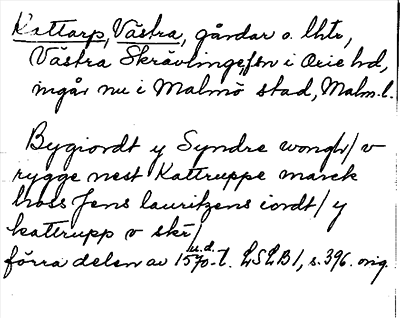 Kattarp, Västra, gårdar o. lhtr,
Västra Skrävlinge fsn i Oxie hd,
ingår nu i Malmö stad, Malm.l.
Bygiordt y Syndre wongh/ v
rygge nest Kattruppe marck
hoss Jens lauritzens iordt/ y
kattrupp v skr/
u.d.
förra delen av 1570-t. LSLB1, s. 396. orig.